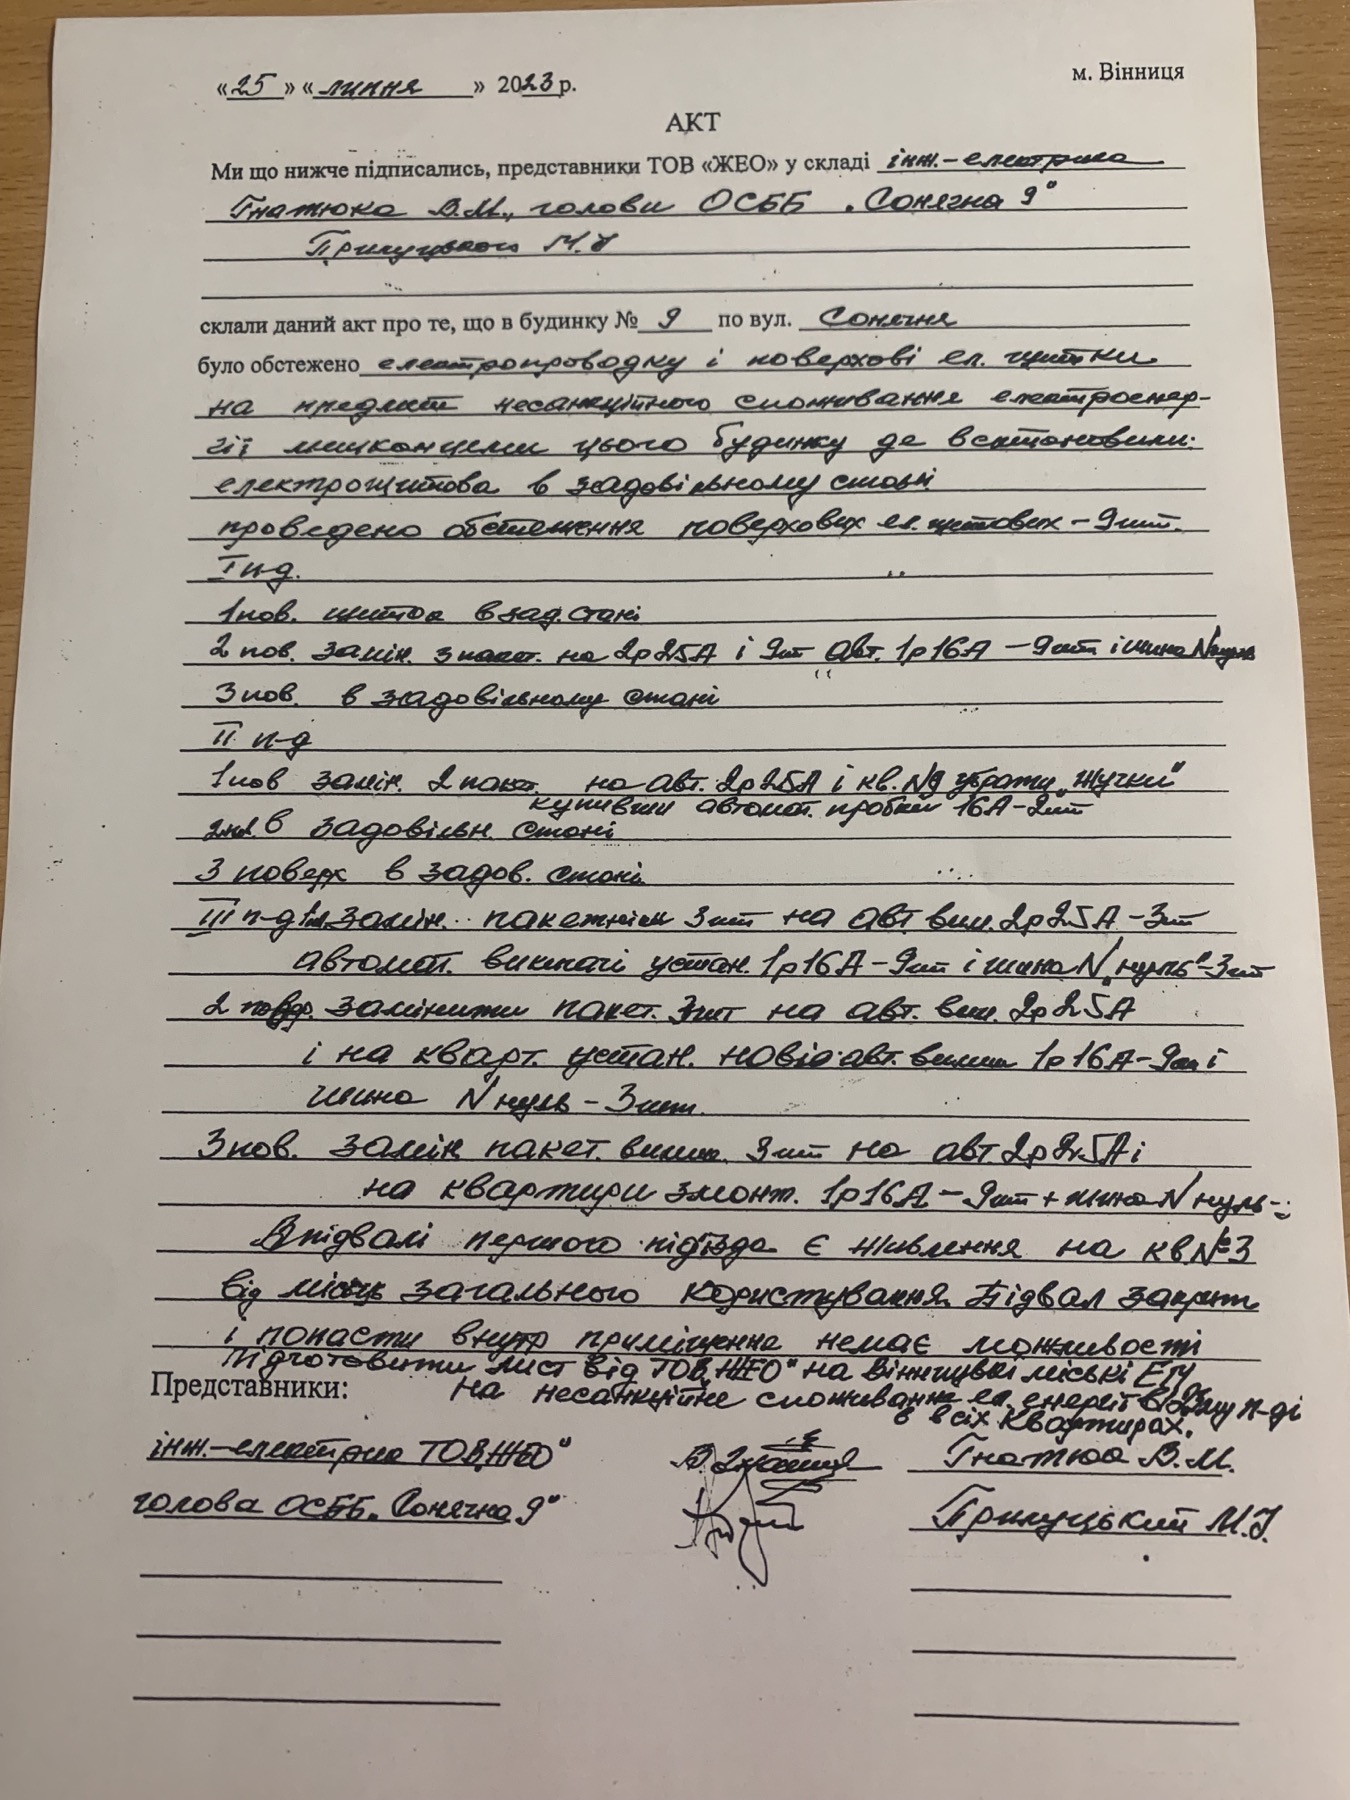 «25» «липня» 2023 р.
м. Вінниця
АКТ
Ми що нижче підписались, представники ТОВ «ЖЕО» у складі інж.-електрика
Гнатюка В.М., голови ОСББ „Сонячна 9"
Прилуцького М.І
склали даний акт про те, що в будинку № 9 по вул. Сонячна
було обстежено електропроводку і поверхові ел. щитки
на предмет несанкційного споживання електроенер-
гії мешканцями цього будинку де встановили:
електрощитова в задовільному стані
проведено обстеження поверхових ел. щитових - 9 шт.
I п-д.
1 пов. щиток в зад. стані
2 пов. замін. 3 пакет. на 2р25А і 9шт авт. 1р16А - 9шт і шина N нуль
3 пов. в задовільному стані
II п-д
1 пов замін. 2 пакт. на авт. 2р25А і кв. №9 убрати „жучки"
купивши автомат. пробки 16А-2шт
в задовільн. стані
3 поверх в задов. стані
III п-д замін. пакетніки 3шт на авт вим. 2р25А-3шт
автомат. вимикачі устан. 1р16А-9шт і шина N „нуль"-3шт
2 замінити пакет. 3шт на авт. вим. 2р25А
і на кварт. устан. нові авт. вимик 1р16А-9шт і
шина N нуль - 3шт.
3 пов. замін пакет. вимик. 3шт на авт. 2р25А і
на квартири змонт. 1р16А - 9шт + шина N нуль-
В підвалі першого підїзда є живлення на кв.№3
від місць загального користування. Підвал закрит
і попасти внутр приміщення немає можливості
Підготовити лист від ТОВ „ЖЕО" на Вінницькі міські ЕТУ
Представники: на несанкційне споживання ел. енергії в п-ді
в всіх квартирах.
інж.-електрик ТОВ „ЖЕО" Гнатюк В.М.
голова ОСББ „Сонячна 9" Прилуцький М.І.